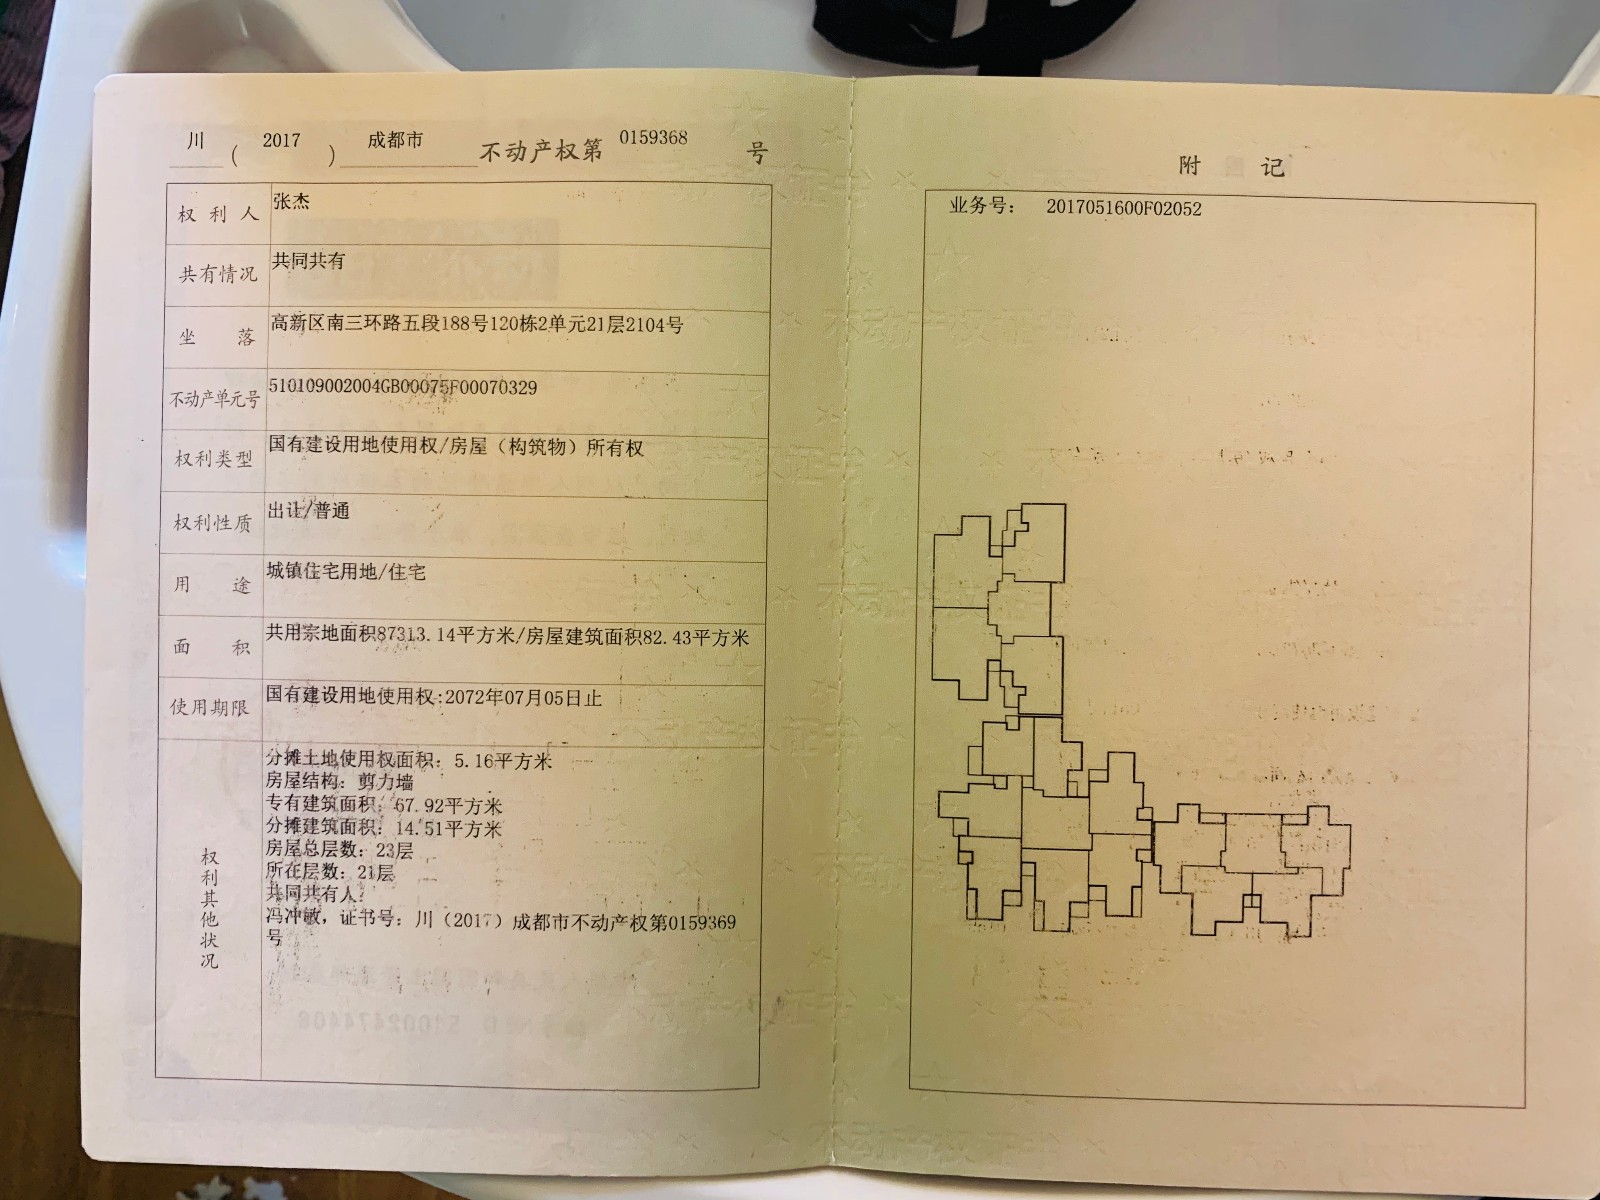 川（2017）成都市不动产权第0159368号
权利人 张杰
共有情况 共同共有
坐落 高新区南三环路五段188号120栋2单元21层2104号
不动产单元号 510109002004GB00075F00070329
权利类型 国有建设用地使用权/房屋（构筑物）所有权
权利性质 出让/普通
用途 城镇住宅用地/住宅
面积 共用宗地面积87313.14平方米/房屋建筑面积82.43平方米
使用期限 国有建设用地使用权:2072年07月05日止
权利其他状况
分摊土地使用权面积：5.16平方米
房屋结构：剪力墙
专有建筑面积：67.92平方米
分摊建筑面积：14.51平方米
房屋总层数：23层
所在层数：21层
共同共有人：
冯冲敏，证书号：川（2017）成都市不动产权第0159369
号
附记
业务号： 2017051600F02052